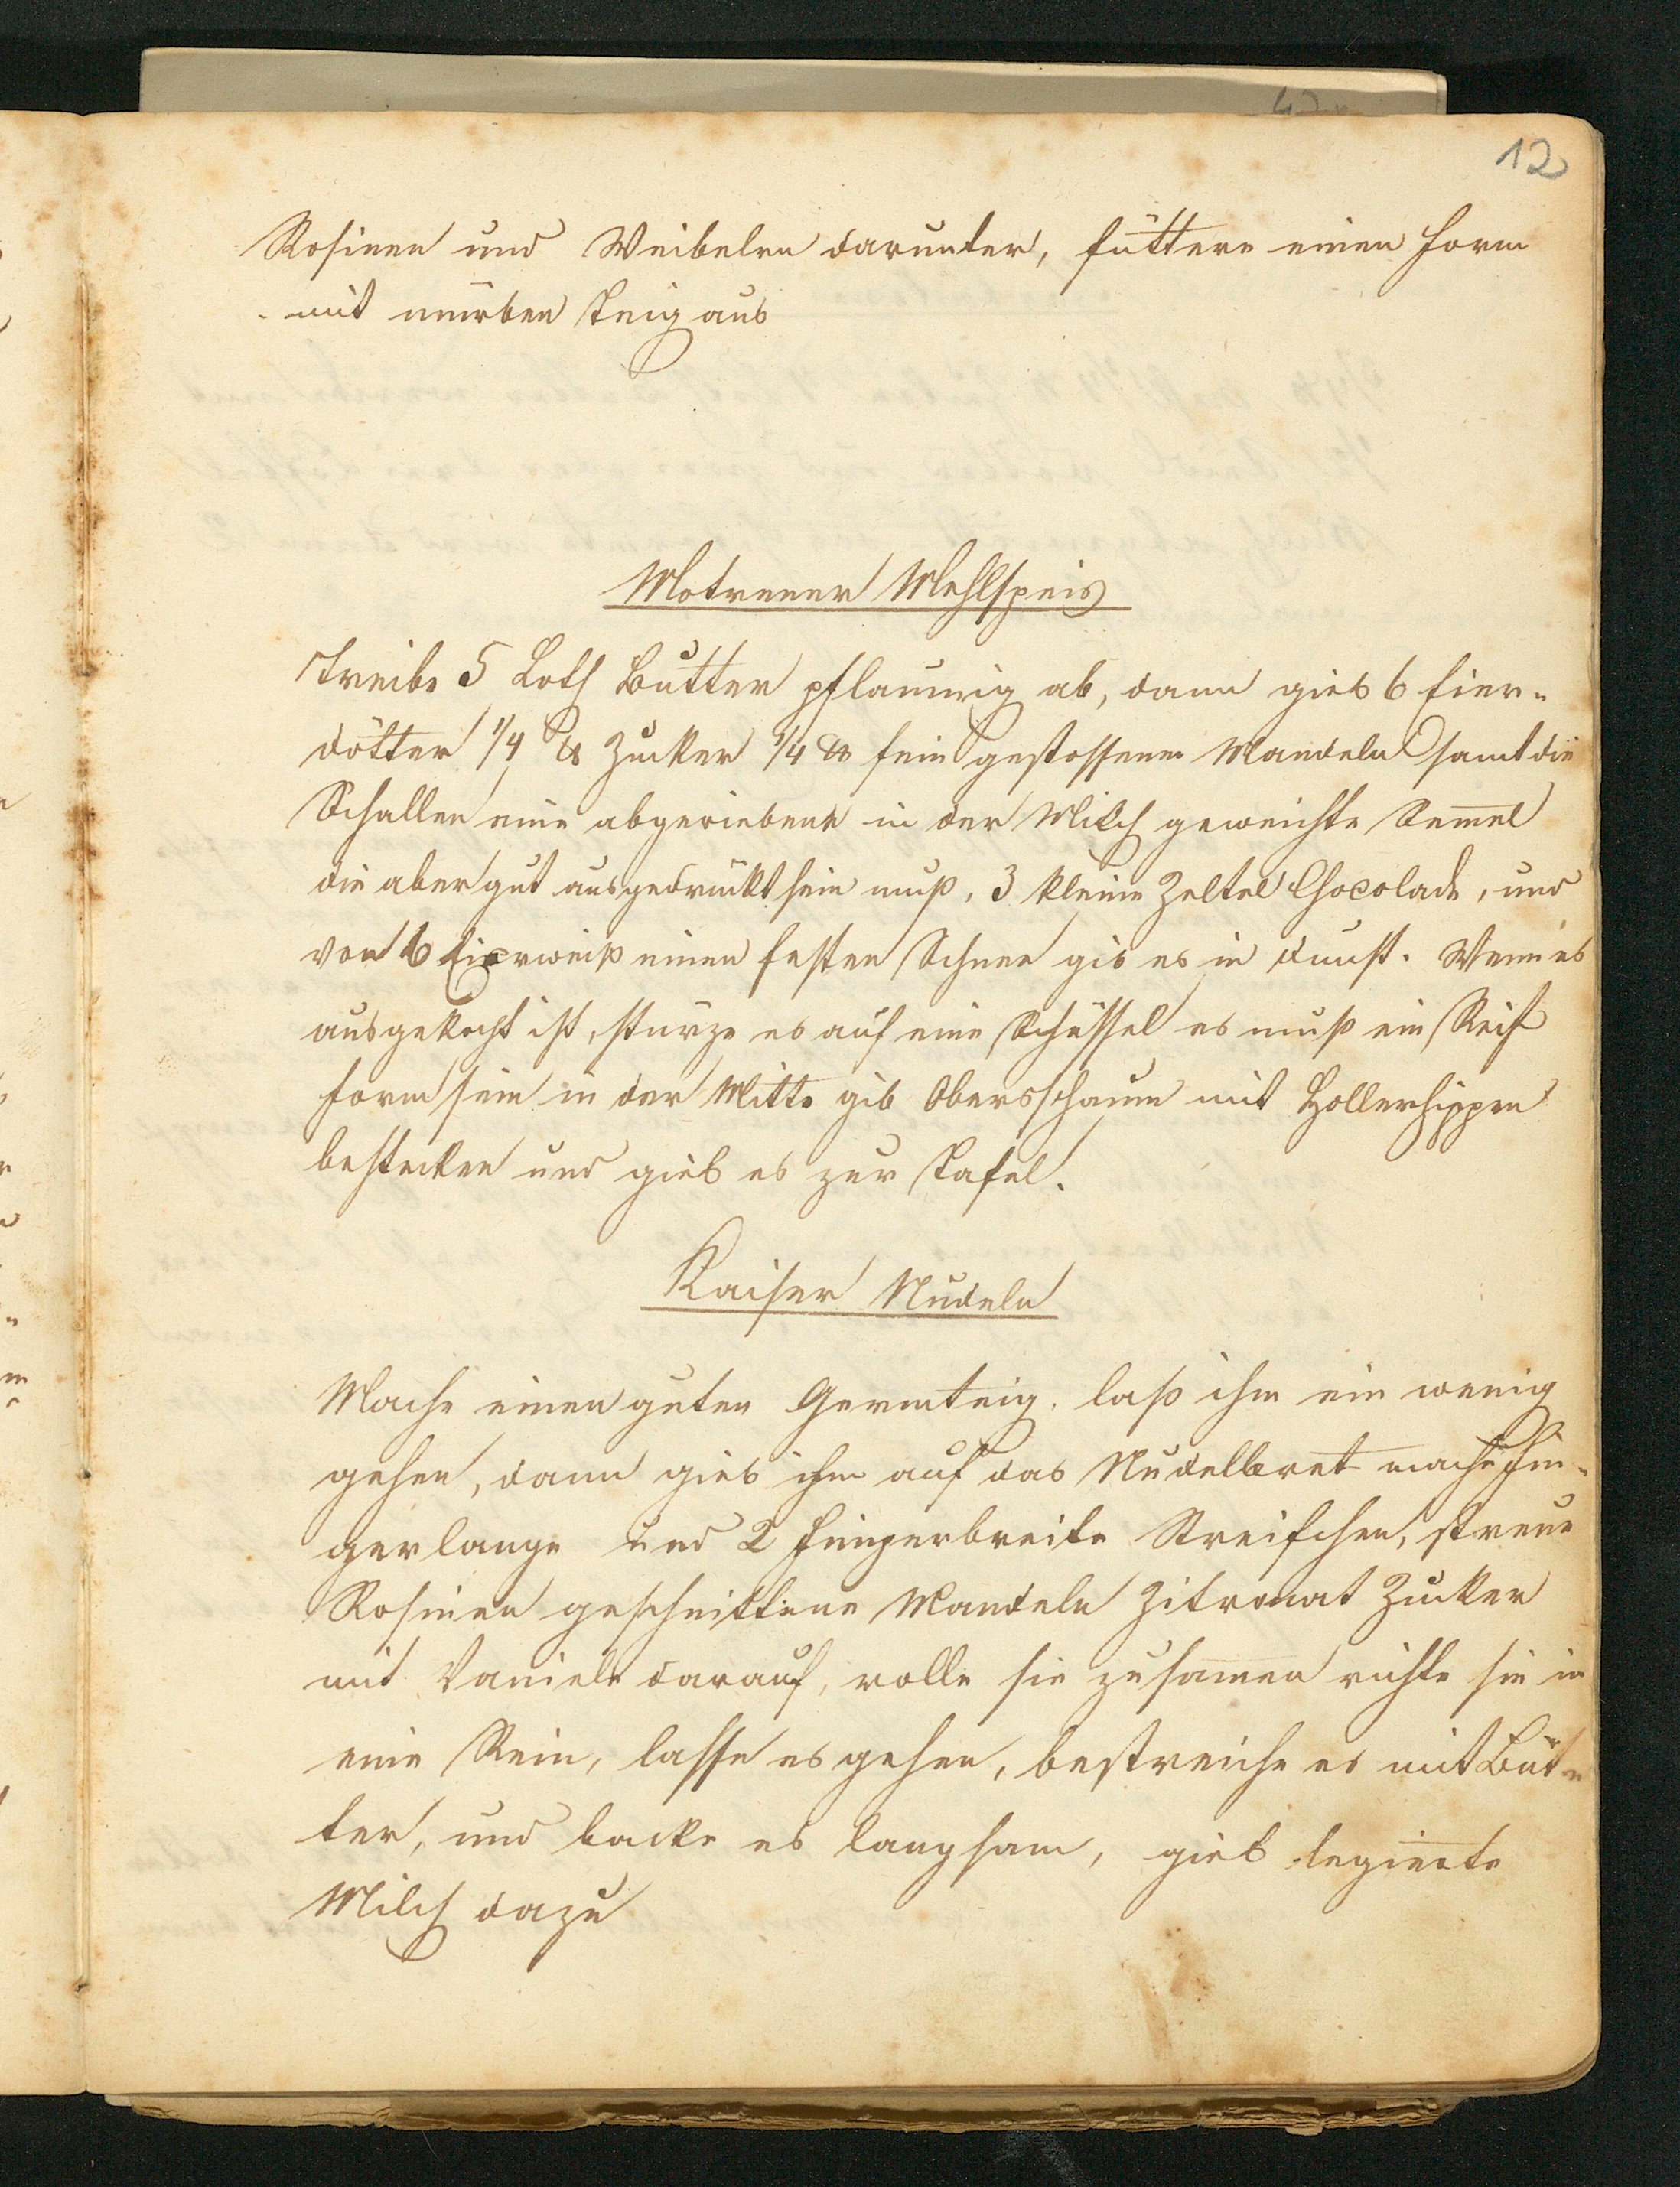 12
Rosinen und Weibeln darunter, füttere einen Form
mit mürben Teig aus
Motrener Mehlspeis
Treibe 5 Loth Butter pflaumig ab, dann gieb 6 Eier-
dötter 1/4 ℔ Zucker 1/4 ℔ fein gestossene Mandeln samt die
Schallen eine abgeriebene in der Milch geweichte Sem̅el
die aber gut ausgedrückt sein muß, 3 kleine Zeltel Chocolade, und
von 6 Eierweiß einen festen Schnee gib es in Dunst. Wenn es
ausgekocht ist, stürze es auf eine Schüssel es muß ein Reif
form sein in der Mitte gib Obersschaum mit Hollerhippen
bestecken und gieb es zur Tafel.
Kaiser Nudeln
Mache einen guten Germteig, laß ihm ein wenig
gehen, dann gieb ihm auf das Nudelbret mache fin-
gerlange und 2 fingerbreite Streifchen, streue
Rosinen geschnittene Mandeln Zitronat Zucker
mit Vaniele darauf, rolle sie zusam̅en richte sie in
eine Rein, lasse es gehen, bestreiche es mit But-
ter, und backe es langsam, gieb legierte
Milch dazu